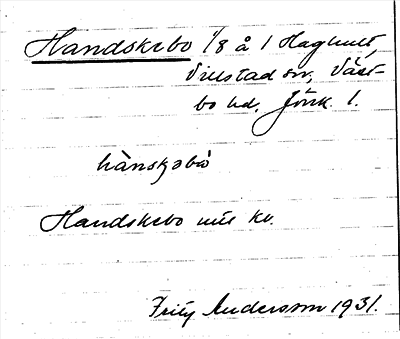 Handskebo 1/8 å 1 Haghult,
Villstad sn, Väst-
bo hd. Jönk. l.
hànskəbò
Handskebo mtl kv.
Fritz Andersson 1931.